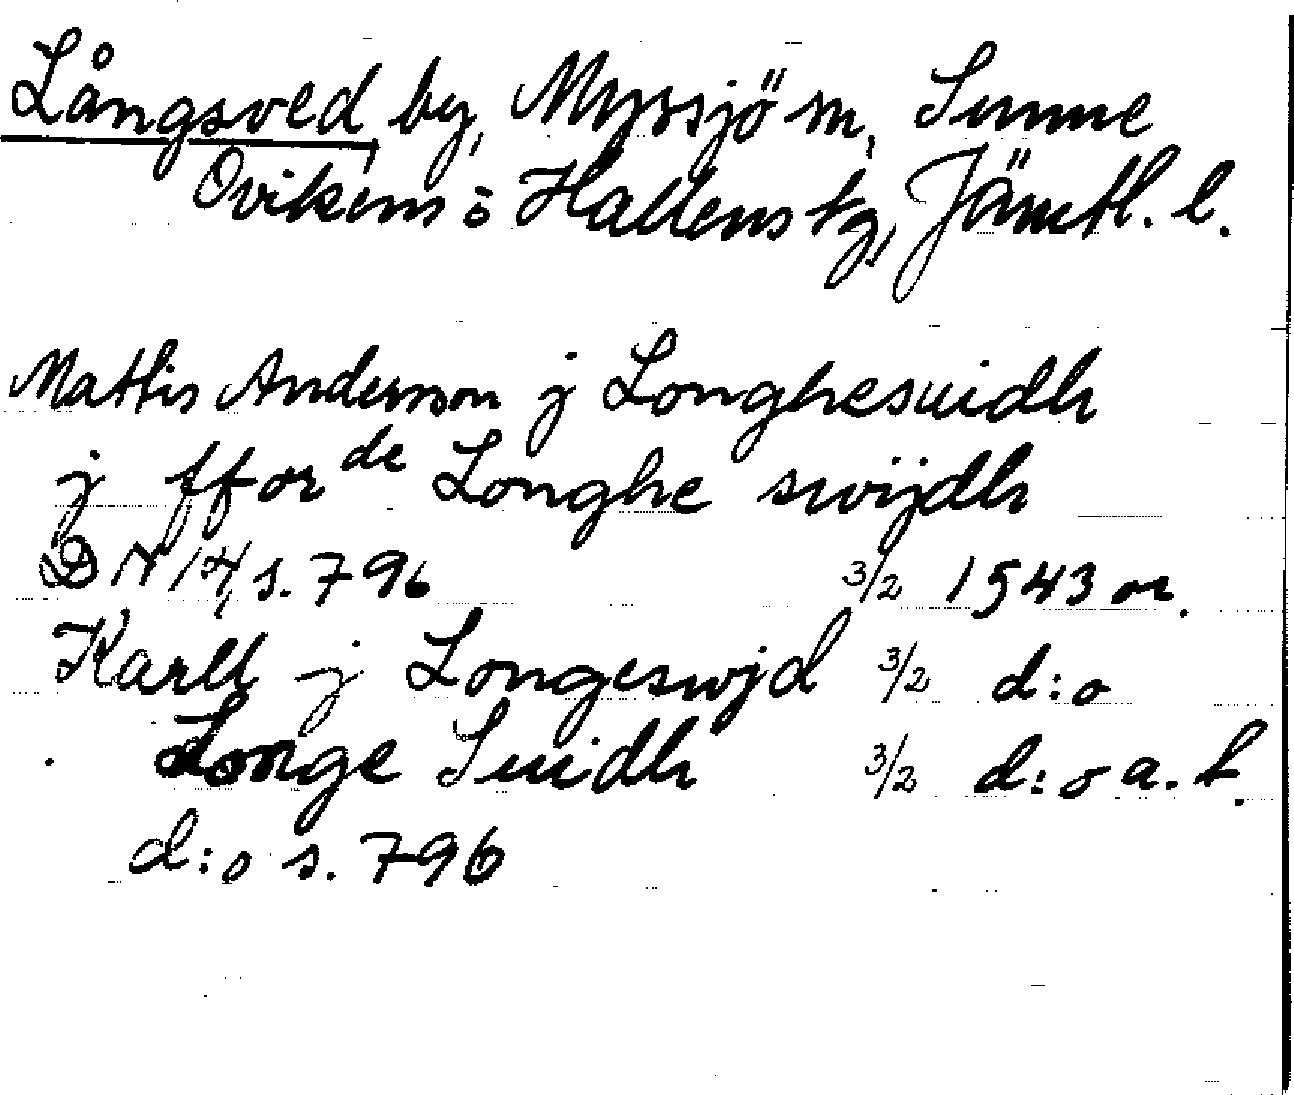 Långsved by, Myssjö sn, Sunne
Ovikens o Hallens tg, Jämtl. l.
Mattis Andersson j Longhesuidh
j fforde Longhe swijdh
DN 14, s. 796 3/2 1543 or.
Karll j Longeswjd 3/2 d:o
Longe Suidh 3/2 d:o a. t.
d:o s. 796